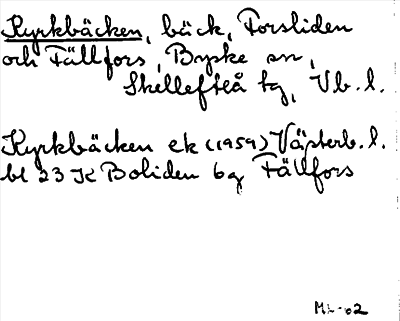 Kyrkbäcken, bäck, Forsliden
och Fällfors, Byske sn,
Skellefteå tg, Vb. l.
Kyrkbäcken ek (1959) Västerb. l.
bl 23 K Boliden 6g Fällfors